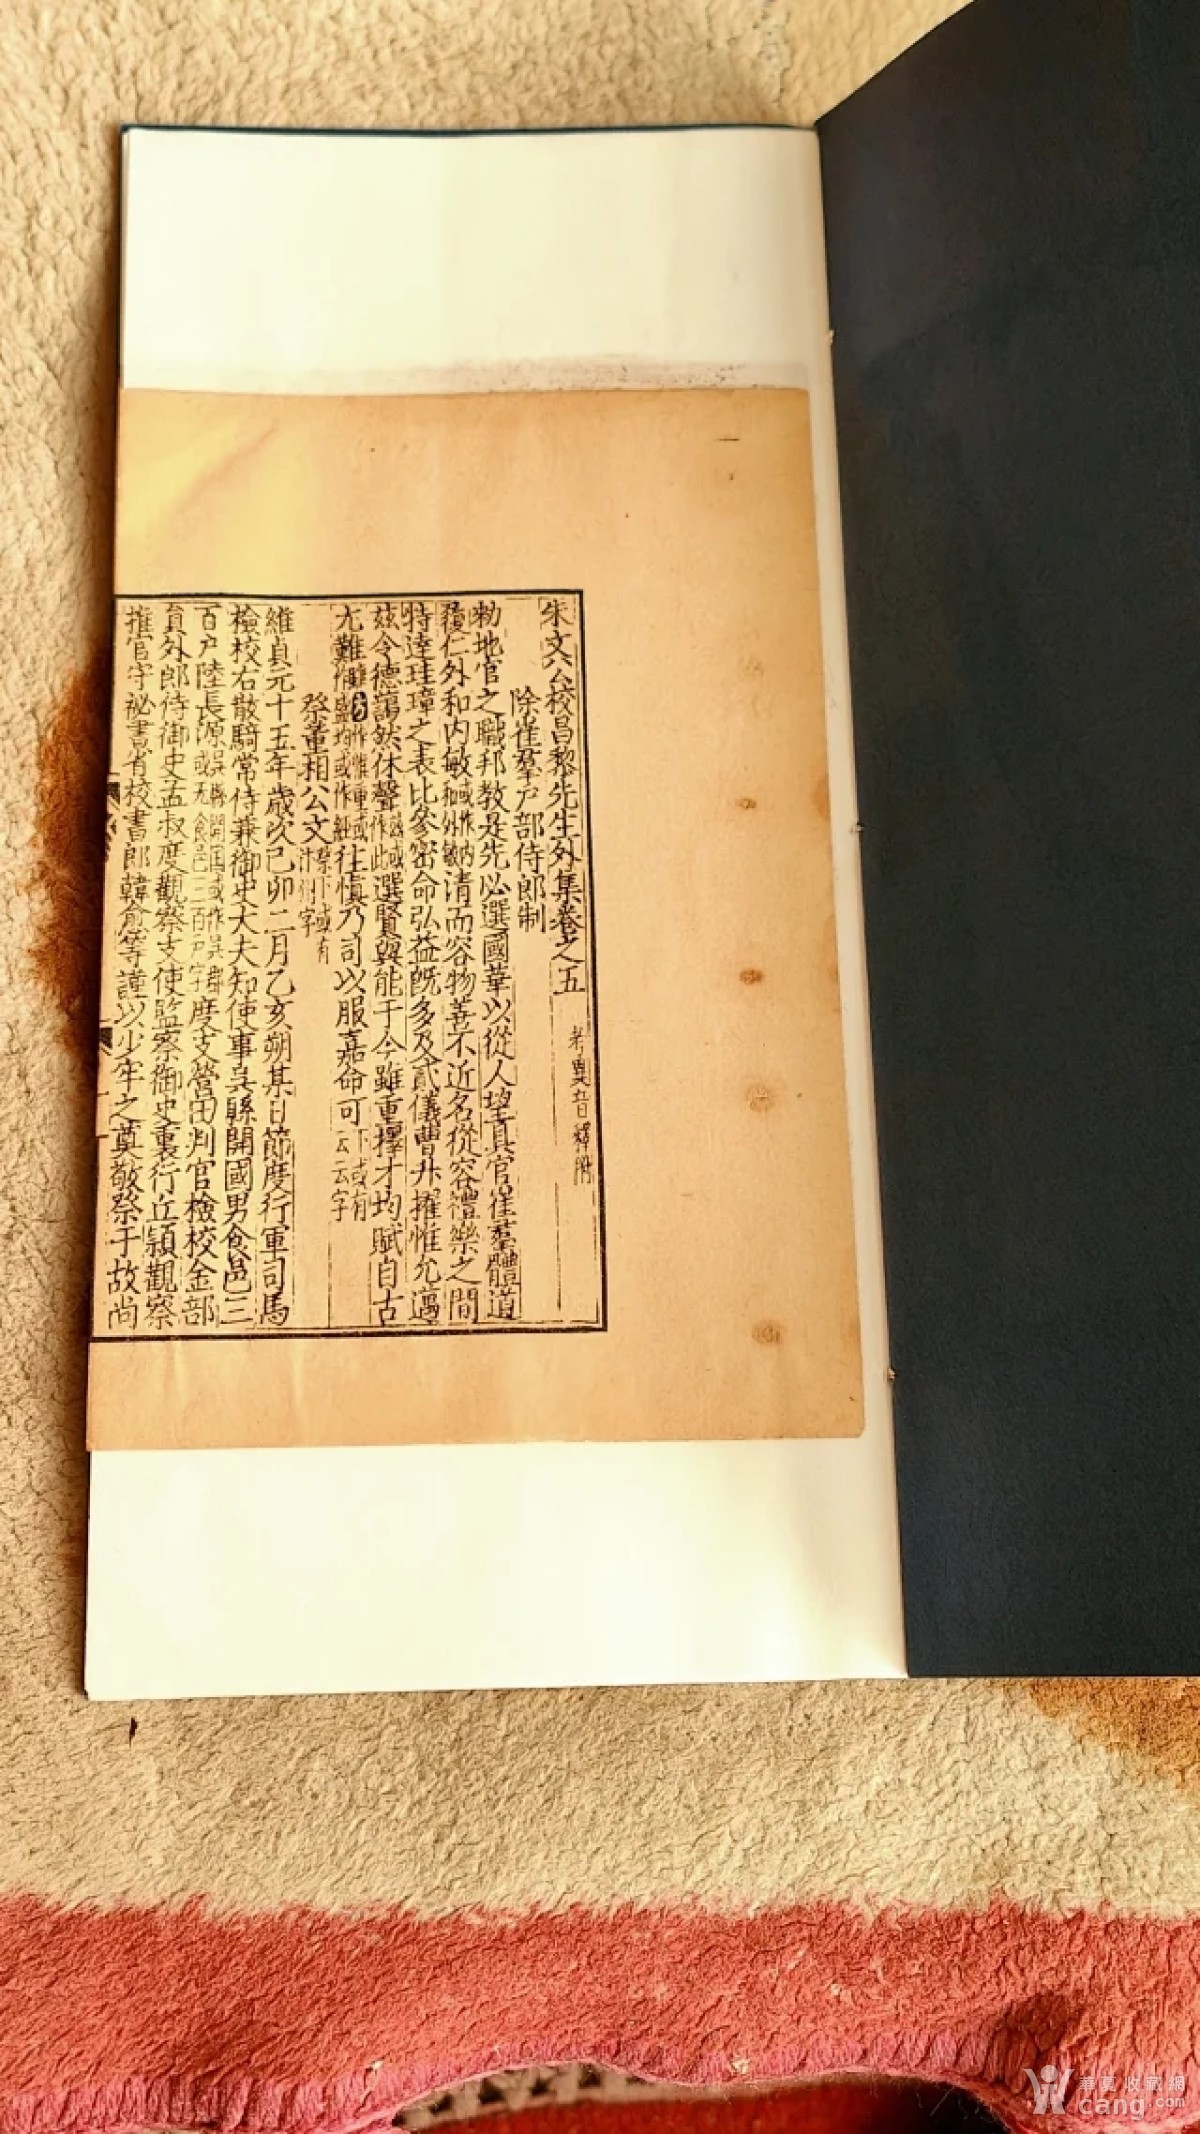 朱文公校昌黎先生外集卷之五 考異音釋附
除崔羣戶部侍郎制
勑地官之職邦教是先必選國華以從人望具官崔羣體道
履仁外和內敏清而容物善不近名從容禮樂之間
特達珪璋之表比參密命弘益既多及貳儀曹升擢惟允邁
茲令德藹然休聲選賢與能于今雖重擇才均賦自古
尤難往慎乃司以服嘉命可下或有云云字
祭董相公文祭下或有汴州字
維貞元十五年歲次己卯二月乙亥朔某日節度行軍司馬
檢校右散騎常侍兼御史大夫知使事吳縣開國男食邑三
百戶陸長源度支營田判官檢校金部
員外郎侍御史孟叔度觀察支使監察御史裏行丘頴觀察
推官守祕書省校書郎韓愈等謹以少牢之奠敬祭于故尚
華夏收藏網
cang.com